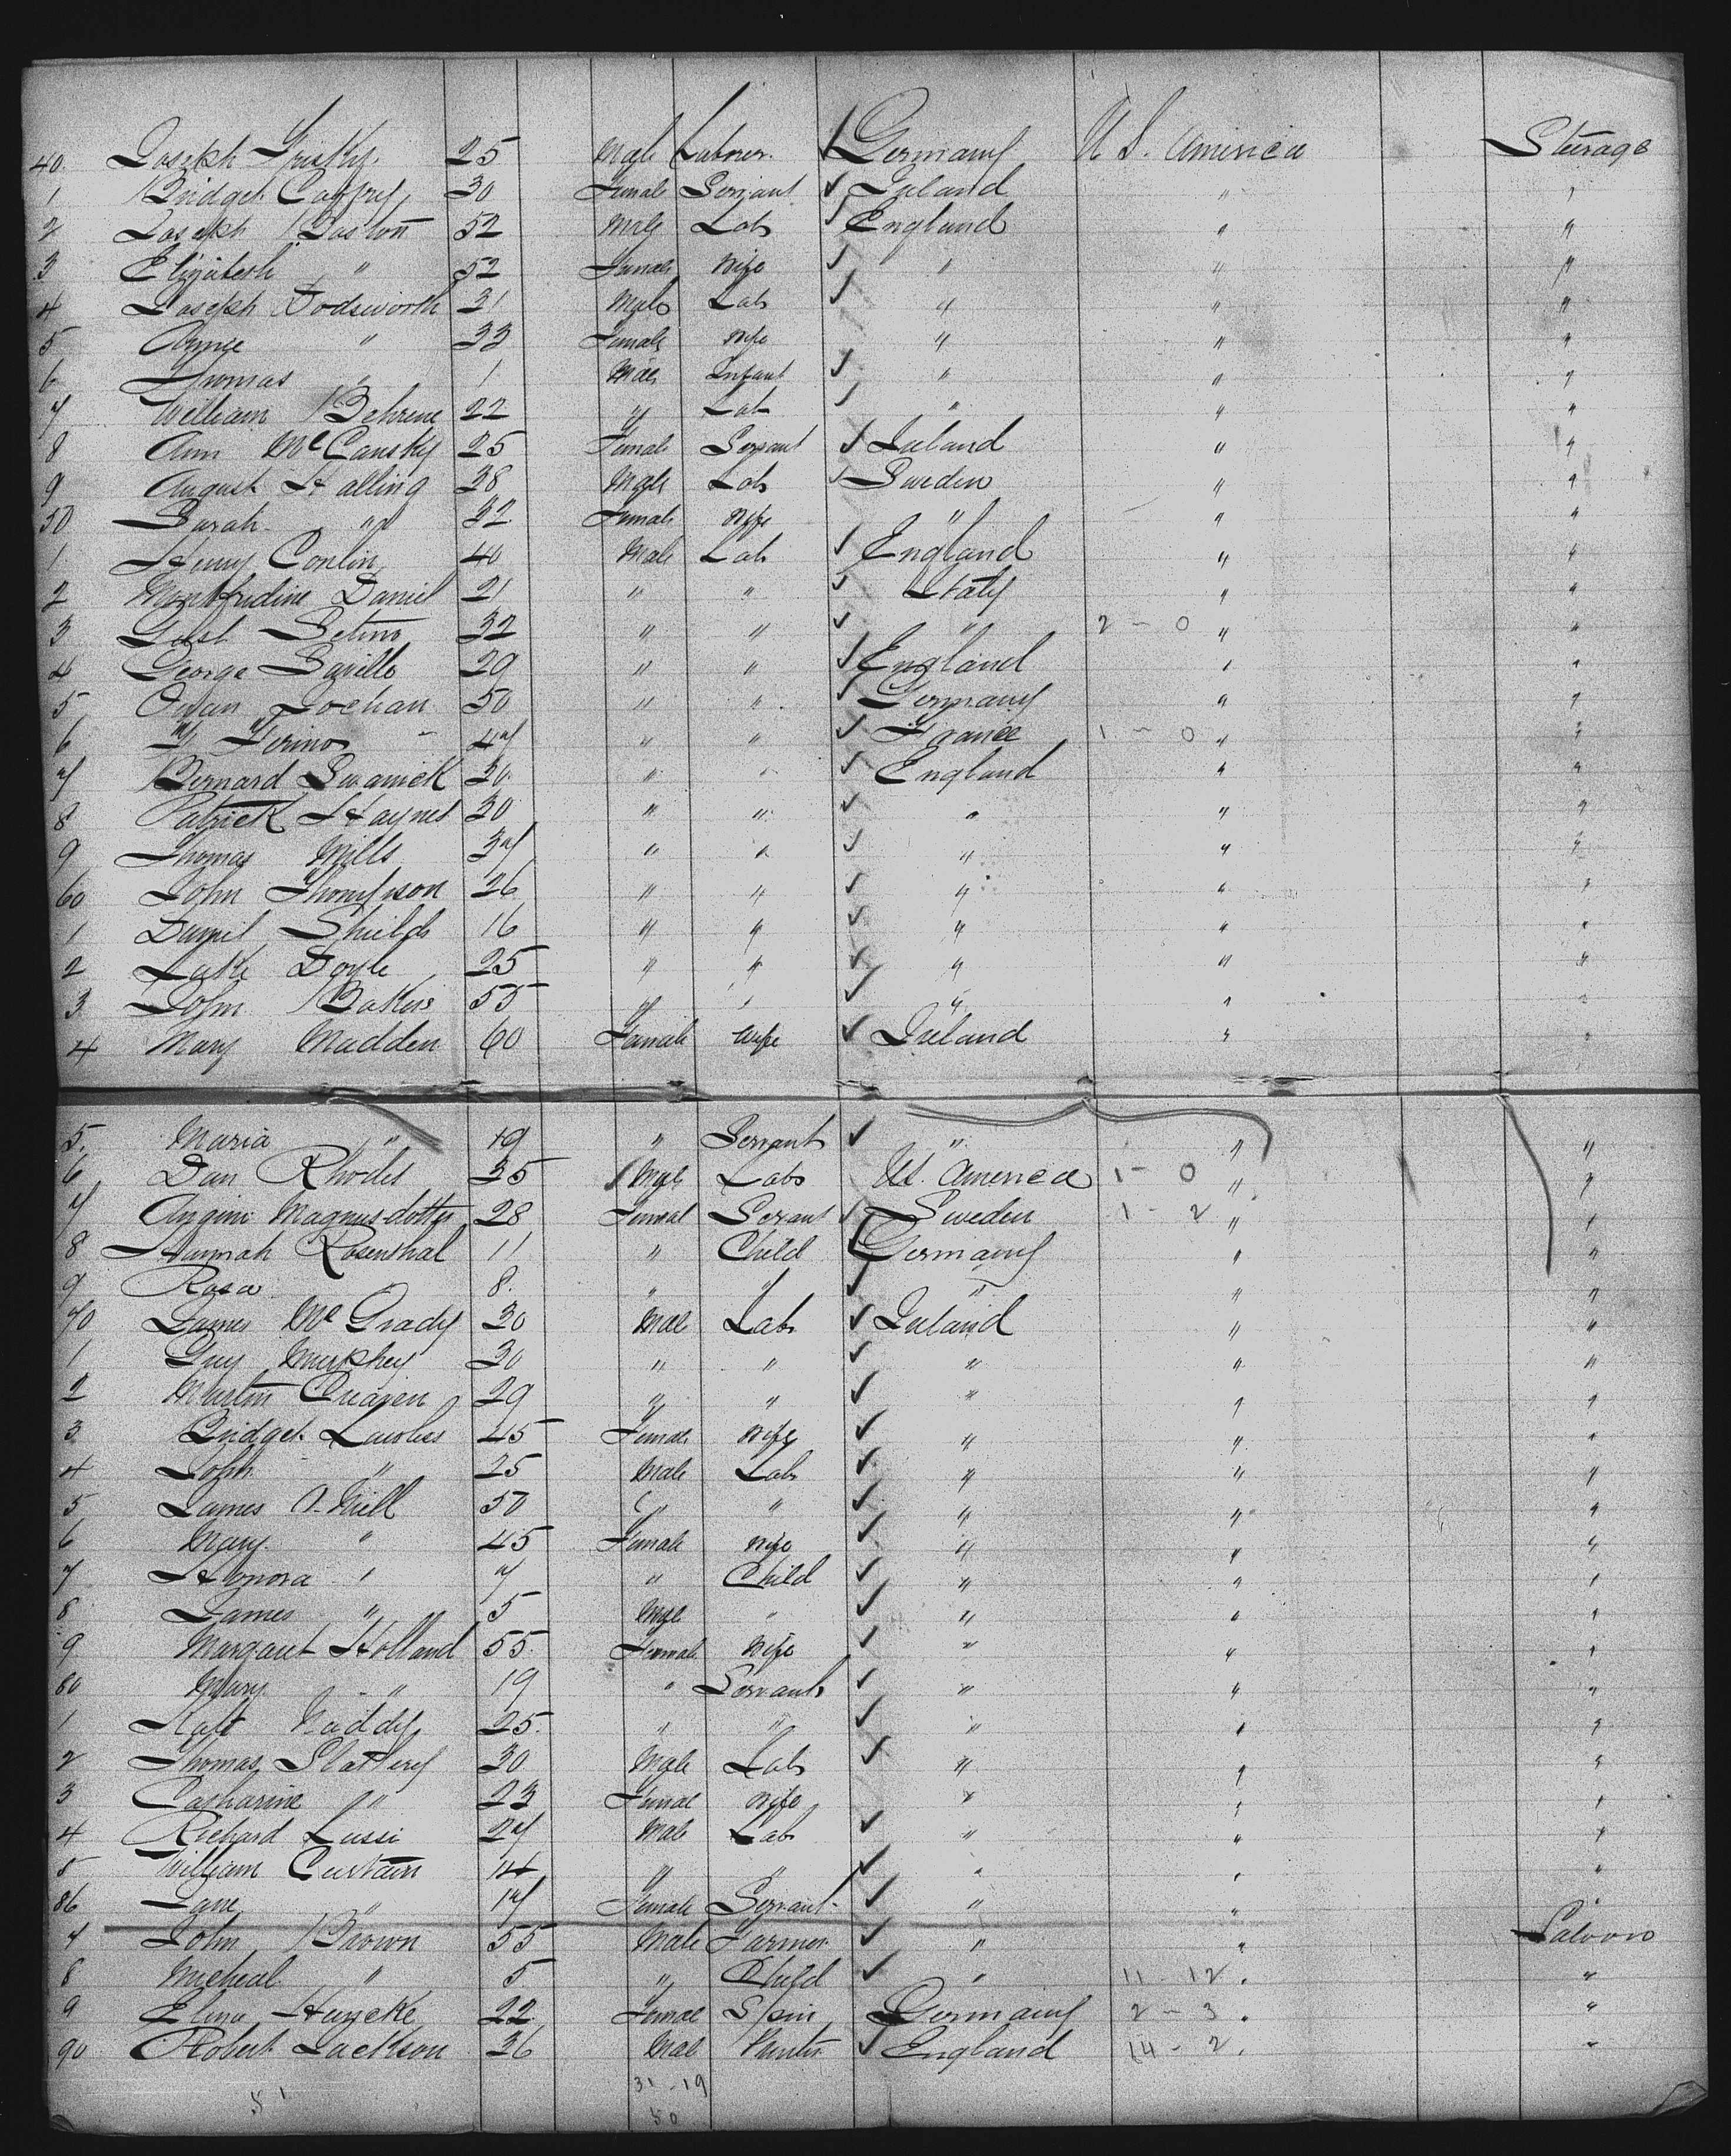 40. Joseph 25 Male Laborer Germany U S. America Sterage
1 Bridget Caffry 30 Female Servant Ireland " "
2 Joseph Baston 52 Male Lab England " "
3 Elizabeth " 52 Female Wife " " "
4 Joseph Dodsworth 31 Male Lab " " "
5 Annie " 33 Female Wife " " "
6 Thomas " 1 Male Infant " " "
7 William Behrene 22 " Lab " " "
8 Ann Mc Cansky 25 Female Servant Ireland " "
9 August Halling 28 Male Lab Sweden " "
50 Sarah " 32 Female Wife " " "
1 Henry Conlin 40 Male Lab England " "
2 Daniel 21 " " Italy " "
3 32 " " " 2 - 0 " "
4 George Saville 29 " " England " "
5 50 " " Germany " "
6 47 " " France 1 - 0 " "
7 Bernard Swanick 30 " " England " "
8 Patrick Haynes 30 " " " " "
9 Thomas Mills 37 " " " " "
60 John Thompson 26 " " " " "
1 Daniel Shields 16 " " " " "
2 Luke Doyle 25 " " " " "
3 John Bakers 55 " " " " "
4 Mary Madden 60 Female Wife Ireland " "
5. Maria " 19 " Servant " " "
6 Dan Rhodes 35 Male Lab US. America 1 - 0 " "
7 Magnus-dotter 28 Femal Servant Sweden 1 - 2 " "
8 Hannah Rosenthal 11 " Child Germany " "
9 Rosa 8. " " " " "
70 James Mc Grady 30 Male Lab Ireland " "
1 Guy Murphey 30 " " " " "
2 Martin 29 " " " " "
3 Bridget Lawless 45 Female Wife " " "
4 John " 25 Male Lab " " "
5 James O-Neill 50 " " " " "
6 Mary " 45 Female Wife " " "
7 Honora " 7 " Child " " "
8 James " 5 Male " " " "
9 Margaret Holland 55 Female Wife " " "
80 Mary " 19 " Servant " " "
1 Kate Naddy 25. " " " " "
2 Thomas Slattery 30 Male Lab " " "
3 Catharine " 23 Femal Wife " " "
4 Richard Lussi 27 Male Lab " " "
5 William Curtain 14 " " " " "
86 Jane " 17 Female Servant " " "
7 John Brown 55 Male Farmer " " Saloon
8 Micheal " 5 " Child " 11 - 12 " "
9 Elina Hencke 22 Femal Spin Germany 2 - 3 " "
90 Robert Jackson 36 Male England 14 - 2 " "
31 - 19
51
50